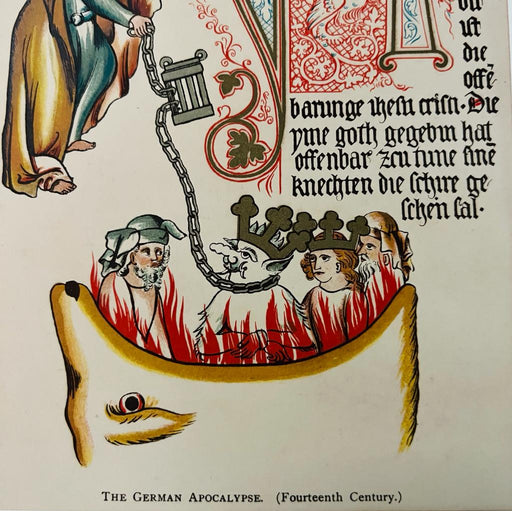 die
offē
barunge ihesu cristi. Die
yme goth gegebin hat
offenbar zcu tune sinē
knechten die schire ge
schen sal.
THE GERMAN APOCALYPSE. (Fourteenth Century.)